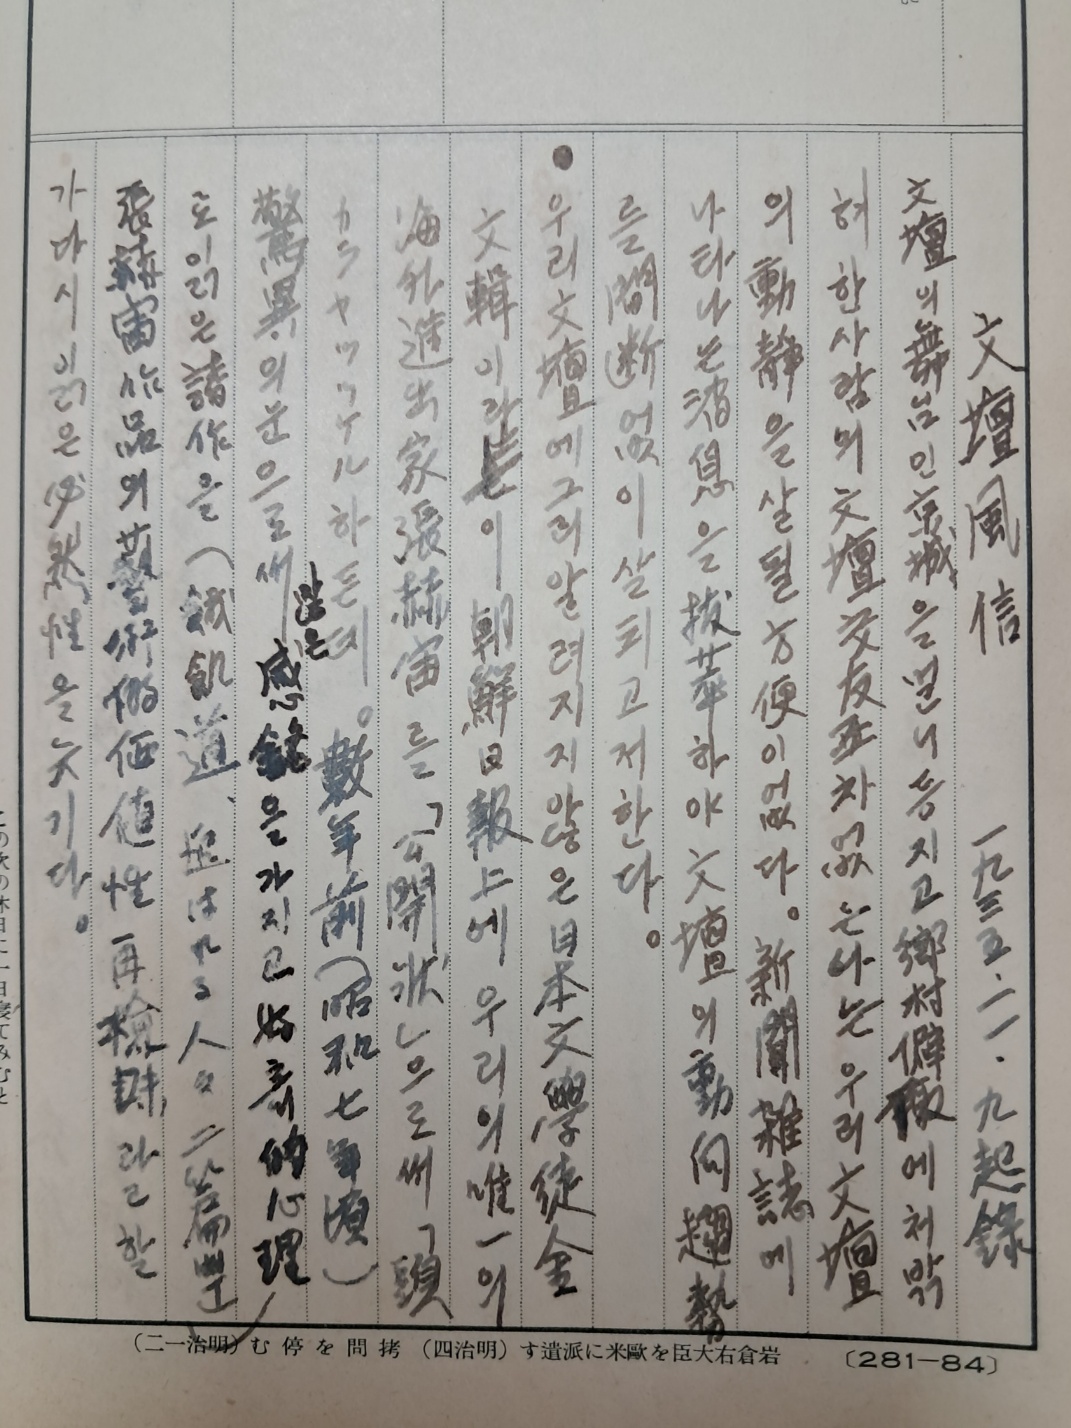 文壇風信 一九三五.一一.九起錄
文壇의舞臺인京城을멀니등지고鄕村僻陬에처박
혀한사람의文壇交友조차없는나는우리文壇
의動靜을살필方便이없다。新聞雜誌에
나타나는消息을拔萃하야文壇의動向趨勢
를間斷없이살피고저한다。
●우리文壇에그리알려지지않은日本文學徒金
文輯이란 이朝鮮日報上에우리의唯一의
海外進出家張赫宙를「公開狀」으로써「頭
カラヤッツケル하는데。數年前(昭和七年頃)
驚異의눈으로써 많은 感銘을가지고 好奇的心理
로읽은諸作을(餓飢道、追はれる人々二篇뿐)
張赫宙作品의藝術的価値性 再檢討라고할
가 다시읽은必然性을늣기다。
(二一治明)む停を問拷(四治明)す遣派に米歐を臣大右倉岩
〔281—84〕